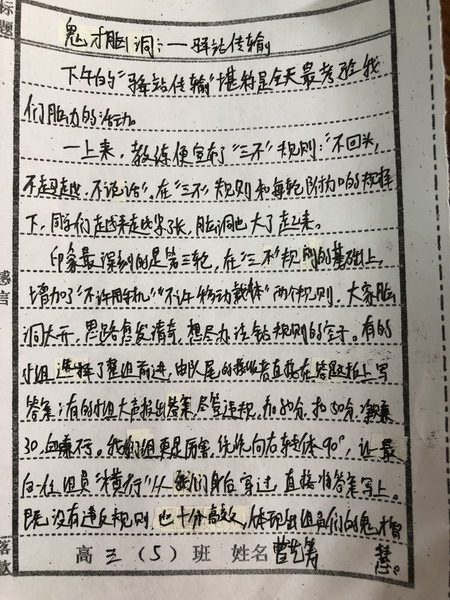 标题
鬼才脑洞:——驿站传输
下午的"驿站传输"堪称是全天最考验我
们脑力的活动。
一上来,教练便宣布了"三不"规则:"不回头,
不越,不说话"。在"三不"规则和每轮附加的规择
下,同学们越来越紧张,脑洞也大了起来。
印象最深刻的是第三轮,在"三不"规则的基础上,
增加了"不许用手机""不许移动载体"两个规则,大家脑
洞大开,思路愈发清奇,想尽办法钻规则的空子。有的
小组选择了整组前进,由队尾的接收者直接在答题板上写
答案;有的小组大声报出答案,尽管违规,加80分,扣50分,净赚
30,血赚不行。我们组更是厉害,统统向右转体90°,让最
后一位组员"横行"从我们身后穿过,直接将答案写上。
既没有违反规则,也十分高效,体现出组员们的鬼才智
慧。
感言
落款
高三(5)班 姓名